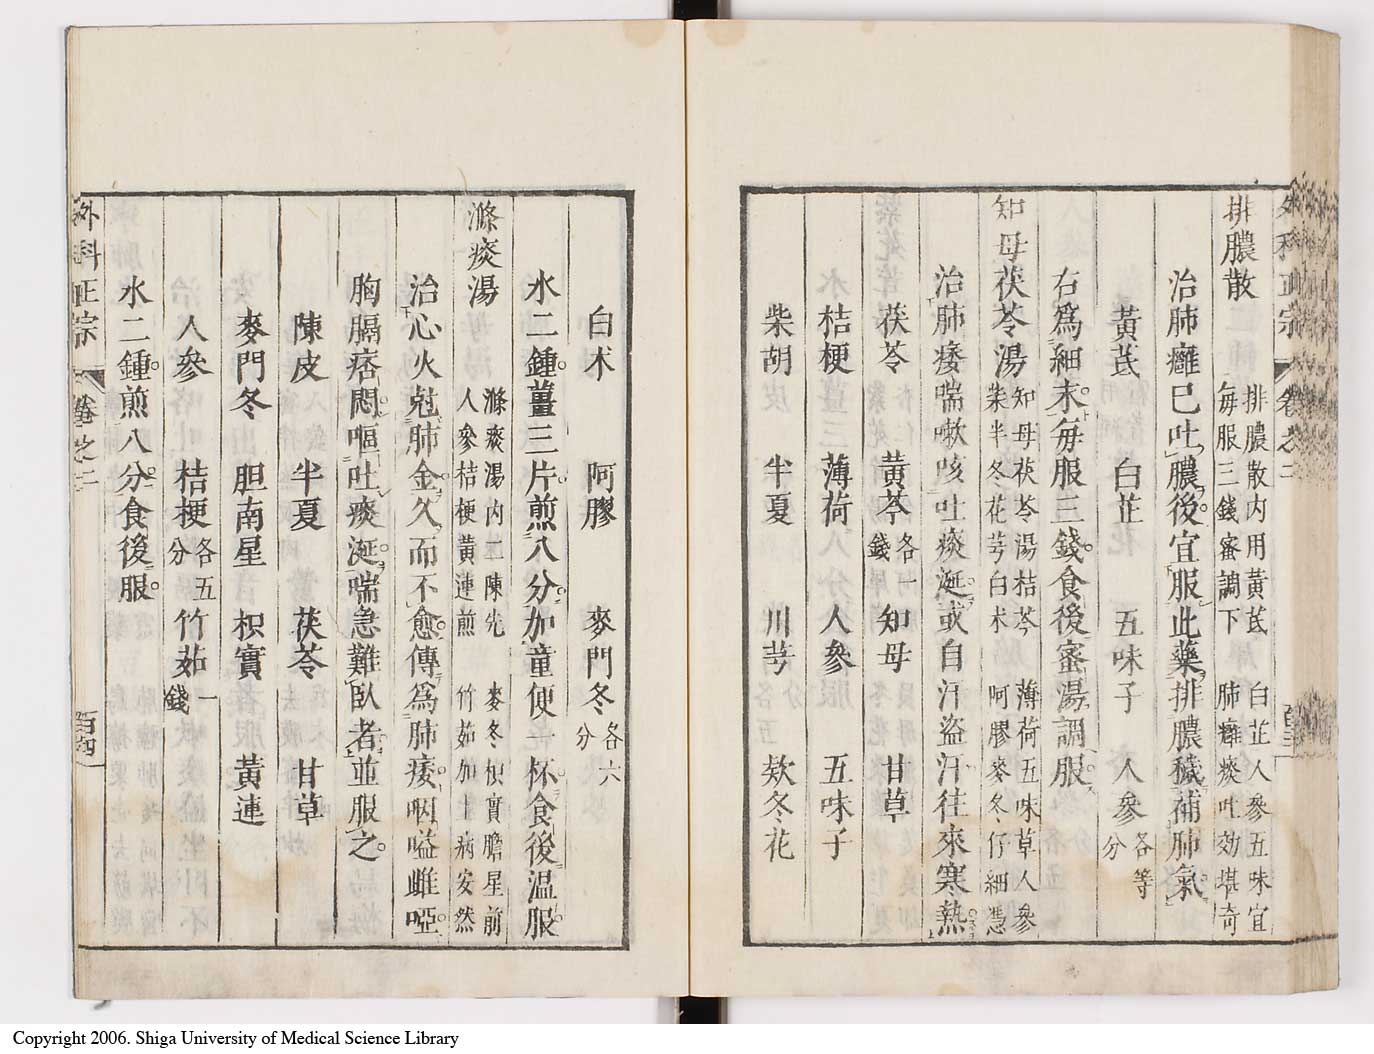 外科正宗 卷之二 百三
排膿散 排膿散内用黃芪 白芷人參五味宜
每服三錢蜜調下 肺癰痰吐効堪奇
治肺癰已吐膿後宜服此藥排膿穢補肺氣
黃芪 白芷 五味子 人參各等分
右爲細末每服三錢食後蜜湯調服
知母茯苓湯 知母茯苓湯桔芩 薄荷五味草人參
柴半冬花芎白术 阿膠麥冬仔細憑
治肺痿喘嗽咳吐痰涎或自汗盜汗往來寒熱
茯苓 黃芩各一錢 知母 甘草
桔梗 薄荷 人參 五味子
柴胡 半夏 川芎 欵冬花
白术 阿膠 麥門冬各六分
水二鍾薑三片煎八分加童便一杯食後温服
滌痰湯 滌痰湯内二陳先 麥冬枳實膽星前
人參桔梗黃連煎 竹茹加之病安然
治心火尅肺金久而不愈傳爲肺痿咽嗌雌啞
胸膈痞悶嘔吐痰涎喘急難臥者並服之
陳皮 半夏 茯苓 甘草
麥門冬 胆南星 枳實 黃連
人參 桔梗各五分 竹茹一錢
水二鍾煎八分食後服
外科正宗 卷之二 百四
Copyright 2006. Shiga University of Medical Science Library